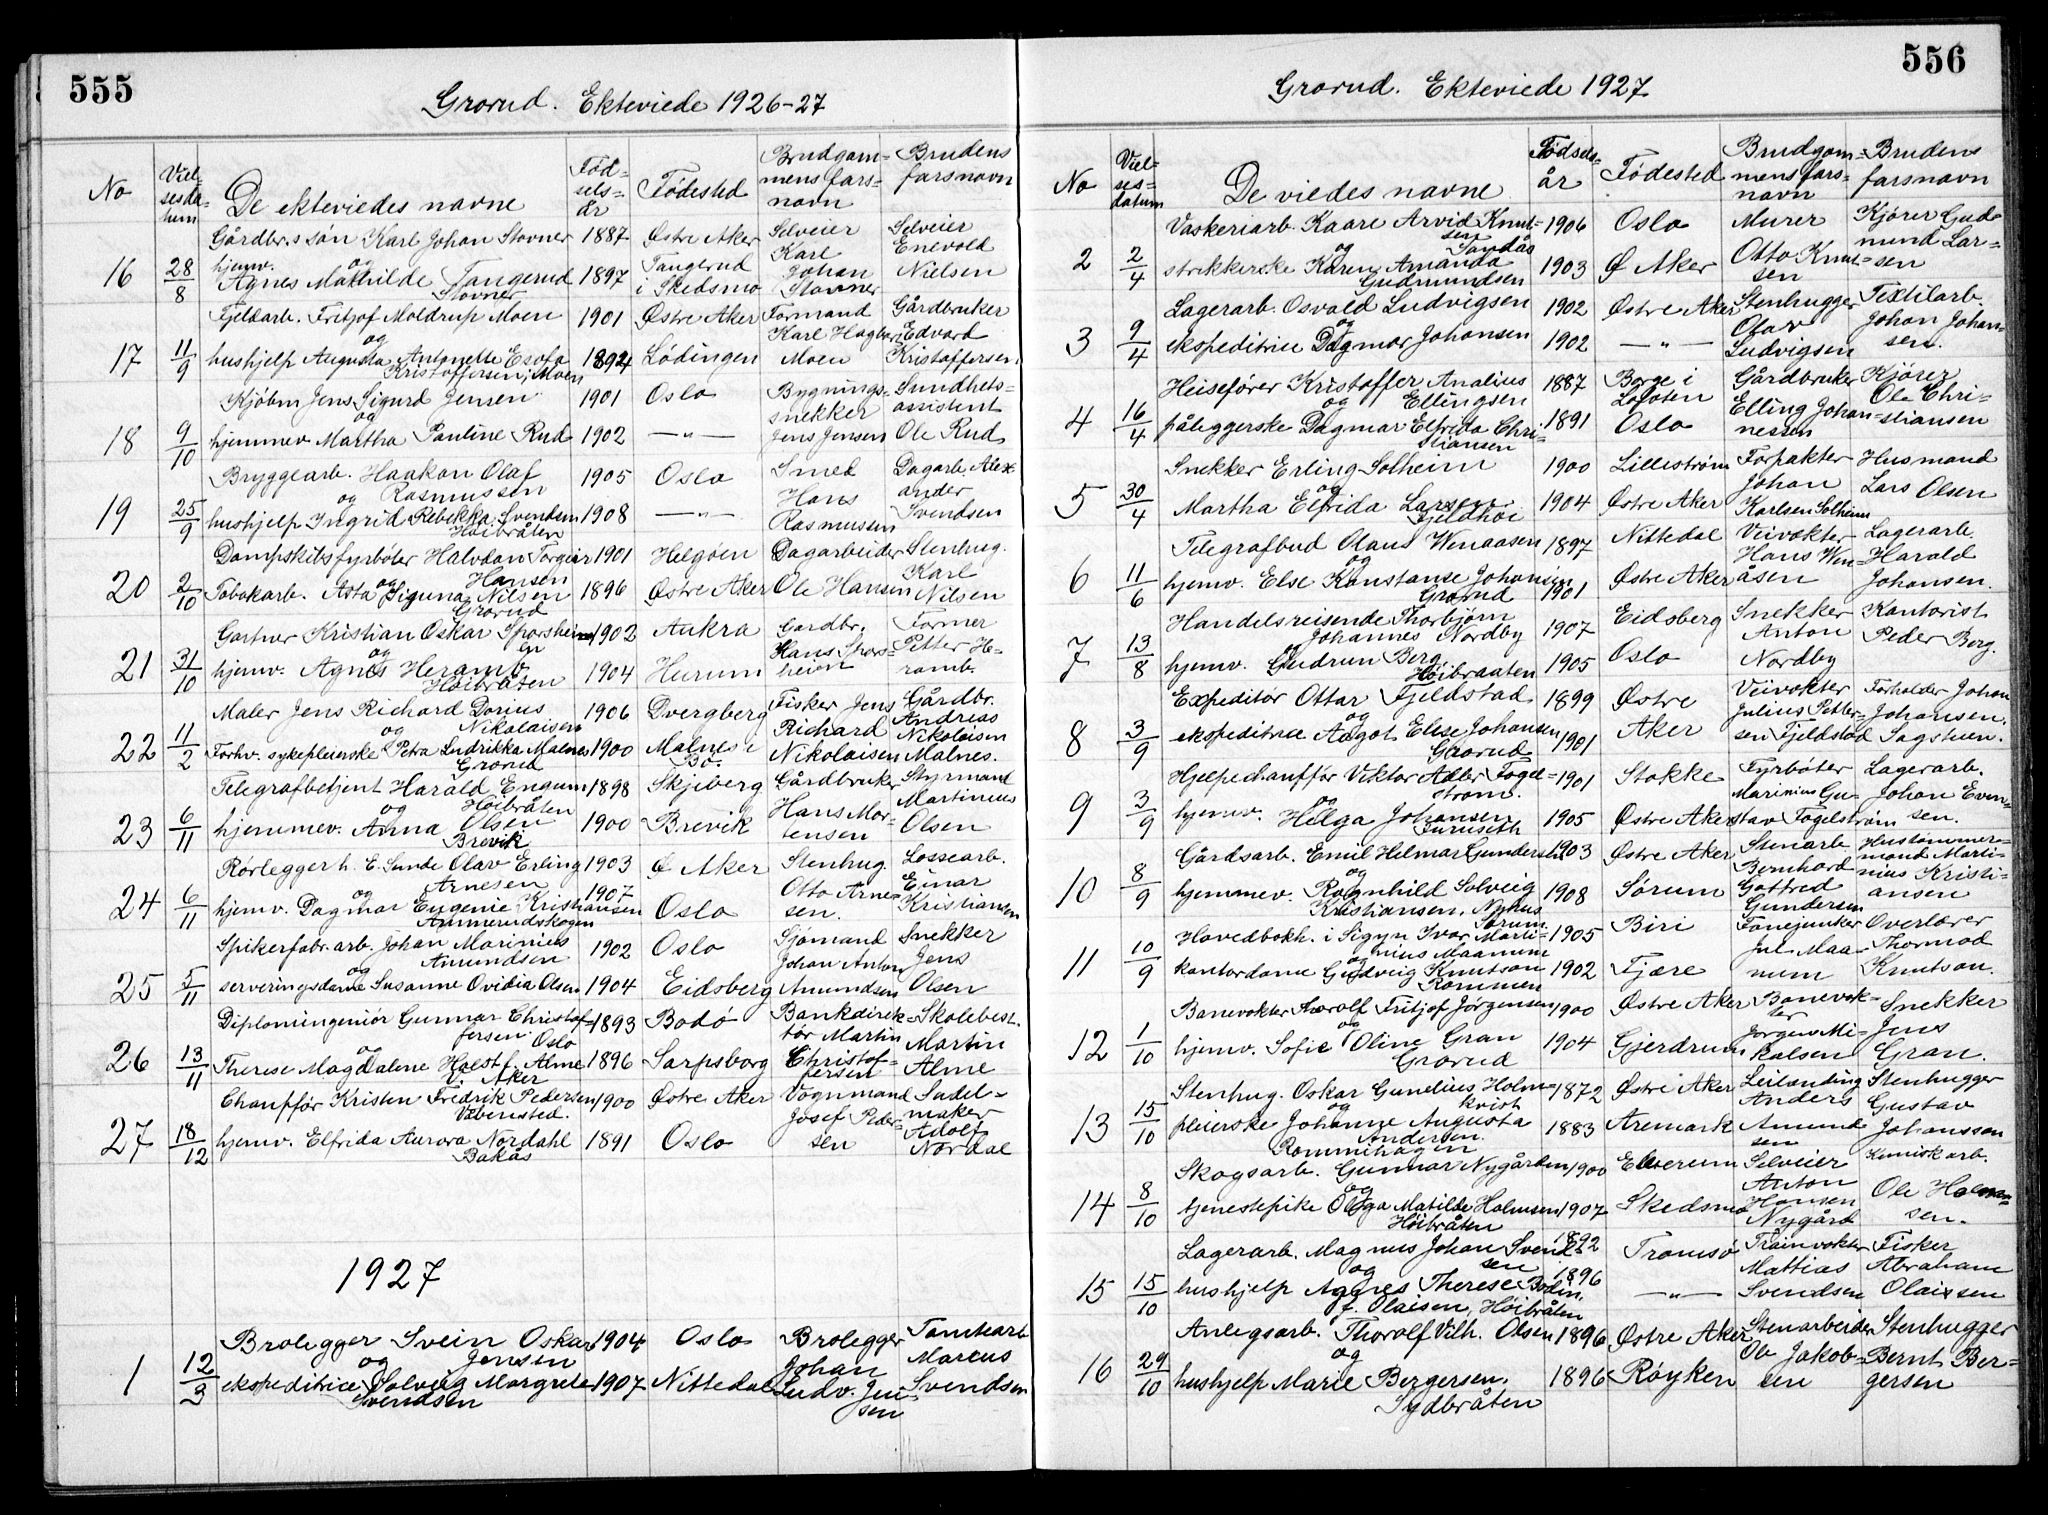 555
Grorud. Ekteviede 1926-27
No
Viel-
sesda-
tum
De ekteviedes navne
Fød-
sels-
år
Fødested
Brudgom-
mens fars-
navn
Brudens
farsnavn
16
28/8
Gårdbr.s søn Karl Johan Stovner 1887 Østre Aker
hjemv. og
Agnes Mathilde Tangerud 1897 Tangerud i Skedsmo
Stovner
Selveier Karl Johan Stovner
Selveier Enevold Nielsen
17
11/9
Fjeldarb. Fritjof Moldrup Moen 1901 Østre Aker
og
hushjelp Augusta Antonette Esofa 1892 Lødingen
Kristoffersen, Moen
Formand Karl Hagbert Moen
Gårdbruker Edvard Kristoffersen
18
9/10
Kjøbm Jens Sigurd Jensen 1901 Oslo
og
hjemmev Martha Pauline Rud 1902 —"—
Bygnings-snekker Jens Jensen
Sundhets-assistent Ole Rud
19
25/9
Bryggearb. Haakon Olaf 1905 Oslo
og Rasmussen
hushjelp Ingrid Rebekka Svendsen 1908 —"—
Høibråten
Smed Hans Rasmussen
Dagarb. Alexander Svendsen
20
2/10
Dampskibsfyrbøter Halvdan Torgeir 1901 Helgøen
og Hansen
Tobakarb. Asta Siguna Nilsen 1896 Østre Aker
Grorud
Dagarbeider Ole Hansen
Stenhug. Karl Nilsen
21
31/10
Gartner Kristian Oskar Sporsheim 1902 Aukra
og
hjemv. Agnes Heramb 1904 Hurum
Høibråten
Gardbr. Hans Sporsheim
Former Petter Heramb.
22
11/2
Maler Jens Richard Dorius 1906 Dvergberg
og Nikolaisen
Forhv. sykepleierske Petra Ludrikka Malnes 1900 Malnes i Bø.
Grorud
Fisker Jens Richard Nikolaisen
Gårdbr. Andreas Nikolaisen Malnes.
23
6/11
Telegrafbetjent Harald Engum 1898 Skjeberg
og Høibråten
hjemmev. Anna Olsen 1900 Brevik
Brevik
Gårdbruker Hans Mortensen
Styrmand Martinius Olsen
24
6/11
Rørlegger h. E. Sunde Olav Erling 1903 Ø Aker
og Arnesen
hjemv. Dagmar Eugenie Kristiansen 1907 Oslo
Ammerudskogen
Stenhug. Otto Arnesen.
Lossearb. Einar Kristiansen
25
5/11
Spikerfabr.arb. Johan Marinius 1902 Oslo
og Amundsen
serveringsdame Susanne Ovidia Olsen 1904 Eidsberg
Sjømand Johan Anton Amundsen
Snekker Jens Olsen
26
13/11
Diplomingeniør Gunnar Christof- 1893 Bodø
fersen Oslo
og
Therese Magdalene Holst f. Alme 1896 Sarpsborg
V. Aker
Bankdirektør Martin Christoffersen
Skolebest. Martin Alme
27
18/12
Chauffør Kristen Fredrik Pedersen 1900 Østre Aker
Vibensted.
hjemv. Elfrida Aurora Nordahl 1891 Oslo
Bakås
Vognmand Josef Pedersen
Sadelmaker Adolf Nordal
1927
1
12/3
Brolegger Svein Oskar 1904 Oslo
og Jensen
ekspeditrice Solveig Margrete 1907 Nittedal
Svendsen
Brolegger Johan Ludv. Jensen
Tomtearb Marcus Svendsen
556
Grorud. Ekteviede 1927
No
Viel-
ses-
datum
De viedes navne
Fødsels-
år
Fødested
Brudgom-
mens fars-
navn
Brudens
farsnavn
2
2/4
Vaskeriarb. Kaare Arvid Knut- 1906 Oslo
og sen Sandås
strikkerske Karen Amanda 1903 Ø Aker
Gudmundsen
Murer Otto Knutsen
Kjører Gudmund Larsen
3
9/4
Lagerarb. Osvald Ludvigsen 1902 Østre Aker
og
ekspeditrice Dagmar Johansen 1902 —"—
Stenhugger Olav Ludvigsen
Textilarb. Johan Johansen.
4
16/4
Heisefører Kristoffer Analius 1887 Borge i Lofoten
og Ellingsen
påleggerske Dagmar Elfrida Chri- 1891 Oslo
stiansen
Gårdbruker Elling Johannessen
Kjører Ole Christiansen
5
30/4
Snekker Erling Solheim 1900 Lillestrøm
og
Martha Elfrida Larsen 1904 Østre Aker
Fjeldhøi
Forpakter Johan Karlsen Solheim
Husmand Lars Olsen
6
11/6
Telegrafbud Olaus Wenaasen 1897 Nittedal
og
hjemv. Else Konstanse Johansen 1901 Østre Aker
Grorud
Veivokter Hans Wenåsen
Lagerarb. Harald Johansen.
7
13/8
Handelsreisende Thorbjørn 1907 Eidsberg
Johannes Nordby
og
hjemv. Gudrun Berg 1905 Oslo
Høibraaten
Snekker Anton Nordby
Kontorist Peder Berg.
8
3/9
Expeditør Ottar Fjeldstad 1899 Østre
og
ekspeditrice Aagot Elise Johansen 1901 Aker
Grorud
Veivokter Julius Pettersen Fjeldstad
Forholder Johan Johansen. Sagstuen.
9
3/9
Hjelpechauffør Viktor Adler Fogel- 1901 Stokke
og strøm.
hjemv. Helga Johansen 1905 Østre Aker
Furuseth
Fyrbøter Marinius Gustav Fogelstrøm
Lagerarb. Johan Evensen.
10
8/9
Gårdsarb. Emil Helmar Gundersen 1903 Østre Aker
og
hjemmev. Ragnhild Solveig 1908 Sørum
Kristiansen, Nyhus Sørum
Stenarb. Bernhard Gotfred Gundersen
Hustømmermand Martinius Kristiansen
11
10/9
Hovedbokh. i Sigyn Ivar Marti- 1905 Biri
og nius Maanum
kontordame Gudveig Knutson 1902 Fjære
Rommen
Fanejunker Jul. Maanum
Overlærer Thormod Knutson.
12
1/10
Banevokter Thorolf Fritjof Jørgensen 1900 Østre Aker
og
hjemv. Sofie Oline Gran 1904 Gjerdrum
Grorud
Banevokter Jørgen Mikalsen
Snekker Jens Gran.
13
15/10
Stenhug. Oskar Gunelius Holm- 1872 Østre Aker
og kvist
pleierske Johanne Augusta 1883 Aremark
Andersen.
Rommihagen
Leilending Anders Amundsen
Stenhugger Gustav Johansson
14
8/10
Skogsarb. Gunnar Nygården 1900 Elverum
og
tjenestepike Olga Matilde Halmsen 1907 Skedsmo
Høibråten
Selveier Anton Hansen Nygård
Kemisk arb. Ole Halvorsen.
15
15/10
Lagerarb. Magnus Johan Svend- 1892 Tromsø
og sen
hushjelp Agnes Therese Bodin, 1896 —"—
f. Olaisen, Høibråten
Trainvokter Mattias Svendsen
Fisker Abraham Olaisen
16
29/10
Anlegsarb. Thorolf Vilh. Olsen 1896 Østre Aker
og
hushjelp Marie Bergersen. 1896 Røyken
Sydbråten
Stenarbeider Ole Jakobsen
Stenhugger Bernt Bergersen